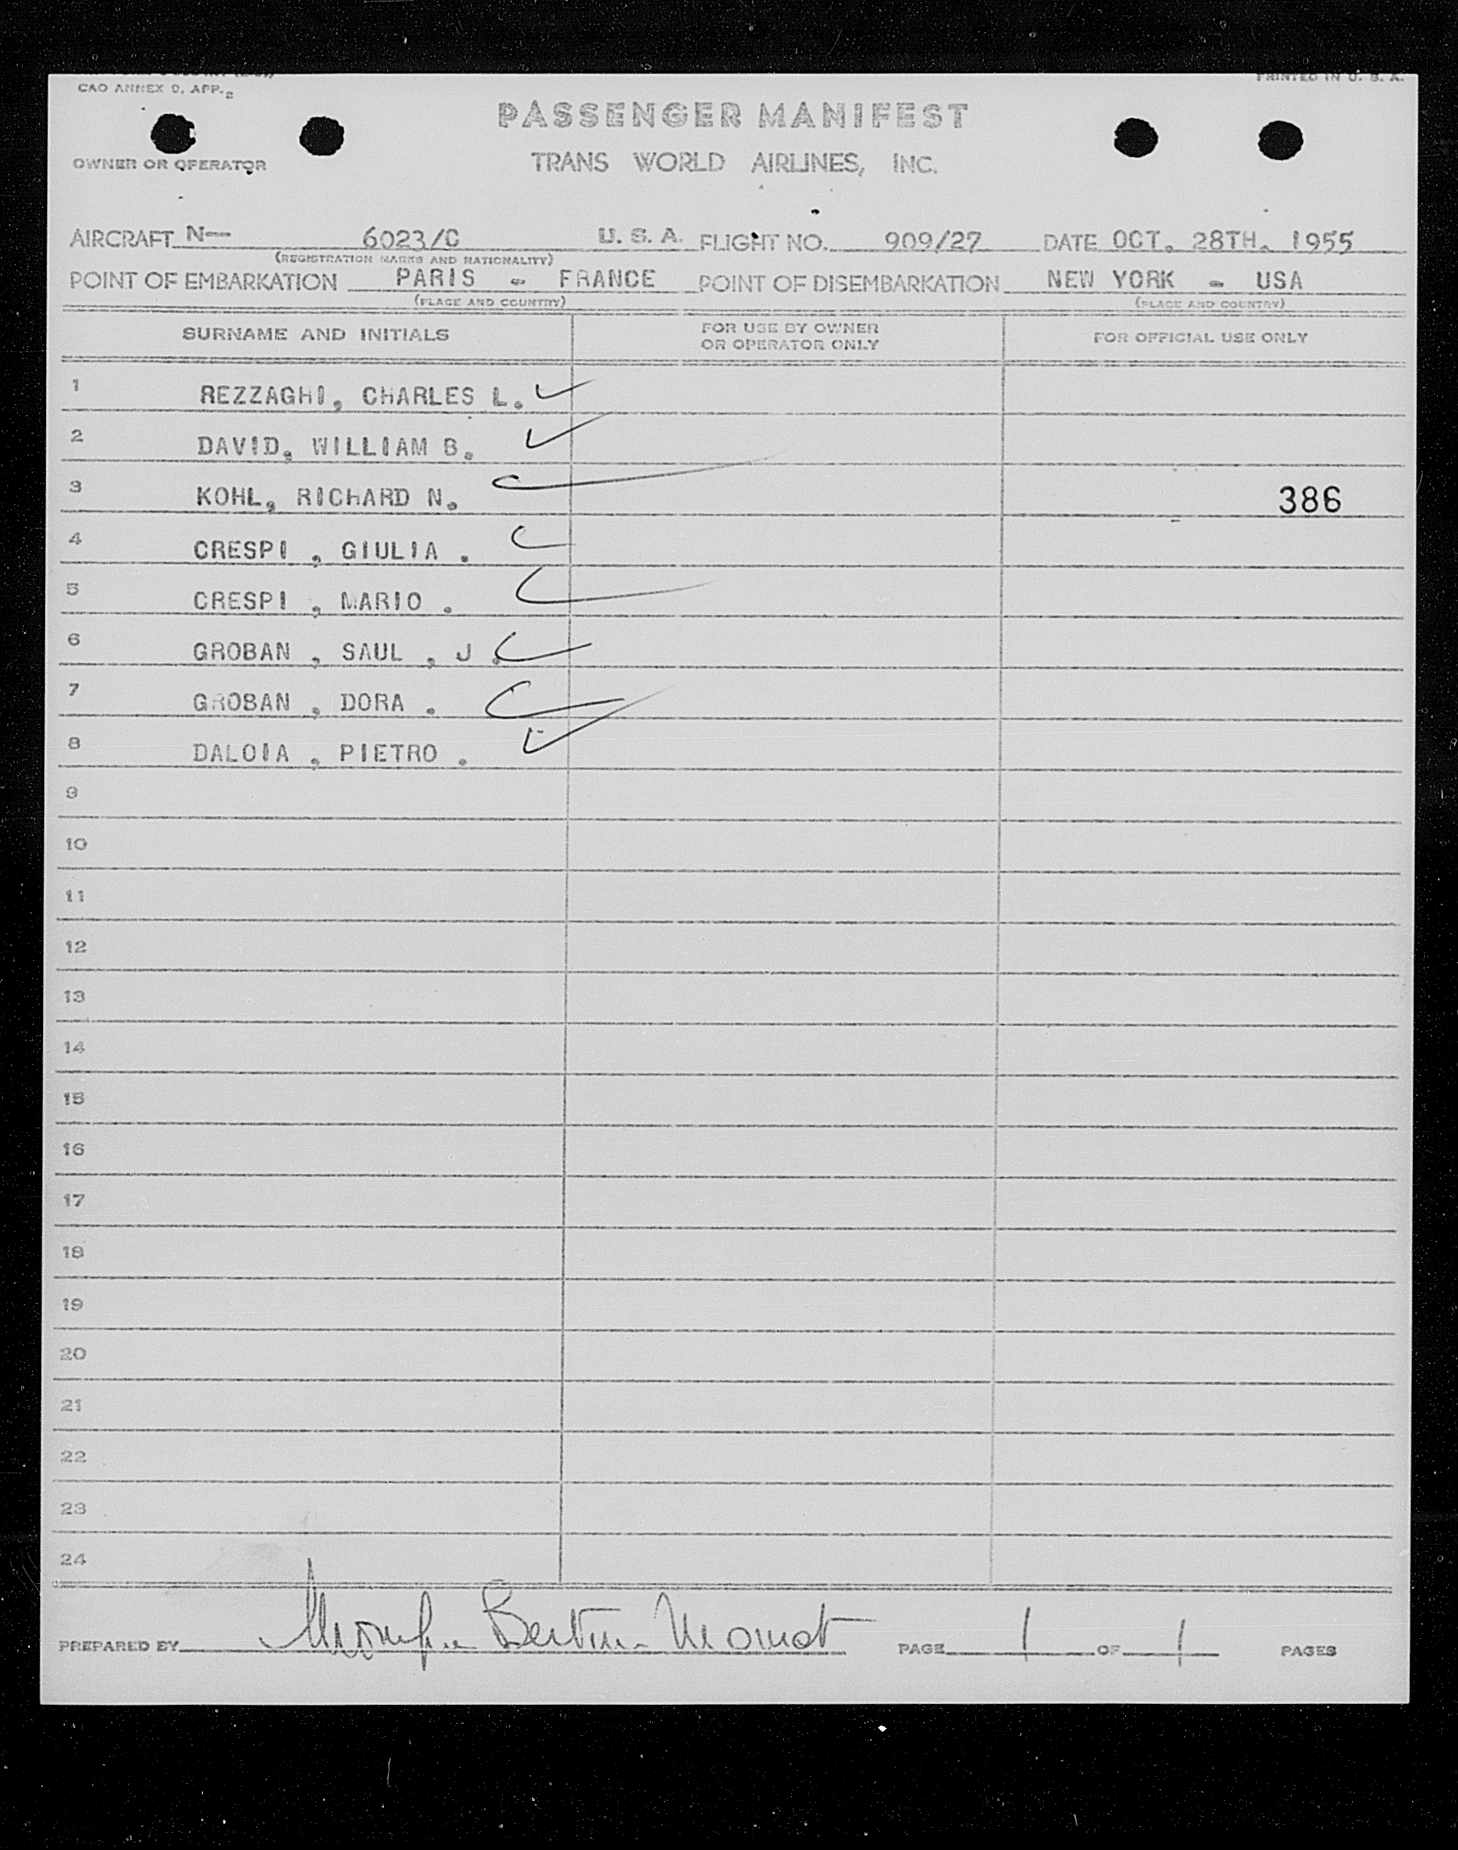 CAO ANNEX 9, APP. 2
PRINTED IN U. S. A.
PASSENGER MANIFEST
OWNER OR OPERATOR
TRANS WORLD AIRLINES, INC.
AIRCRAFT N-- 6023/C U. S. A. FLIGHT NO. 909/27 DATE OCT. 28TH. 1955
(REGISTRATION MARKS AND NATIONALITY)
POINT OF EMBARKATION PARIS - FRANCE POINT OF DISEMBARKATION NEW YORK - USA
(PLACE AND COUNTRY) (PLACE AND COUNTRY)
SURNAME AND INITIALS FOR USE BY OWNER OR OPERATOR ONLY FOR OFFICIAL USE ONLY
1 REZZAGHI, CHARLES L.
2 DAVID, WILLIAM B.
3 KOHL, RICHARD N. 386
4 CRESPI , GIULIA .
5 CRESPI , MARIO .
6 GROBAN , SAUL , J .
7 GROBAN , DORA .
8 DALOIA , PIETRO .
9
10
11
12
13
14
15
16
17
18
19
20
21
22
23
24
PREPARED BY PAGE 1 OF 1 PAGES